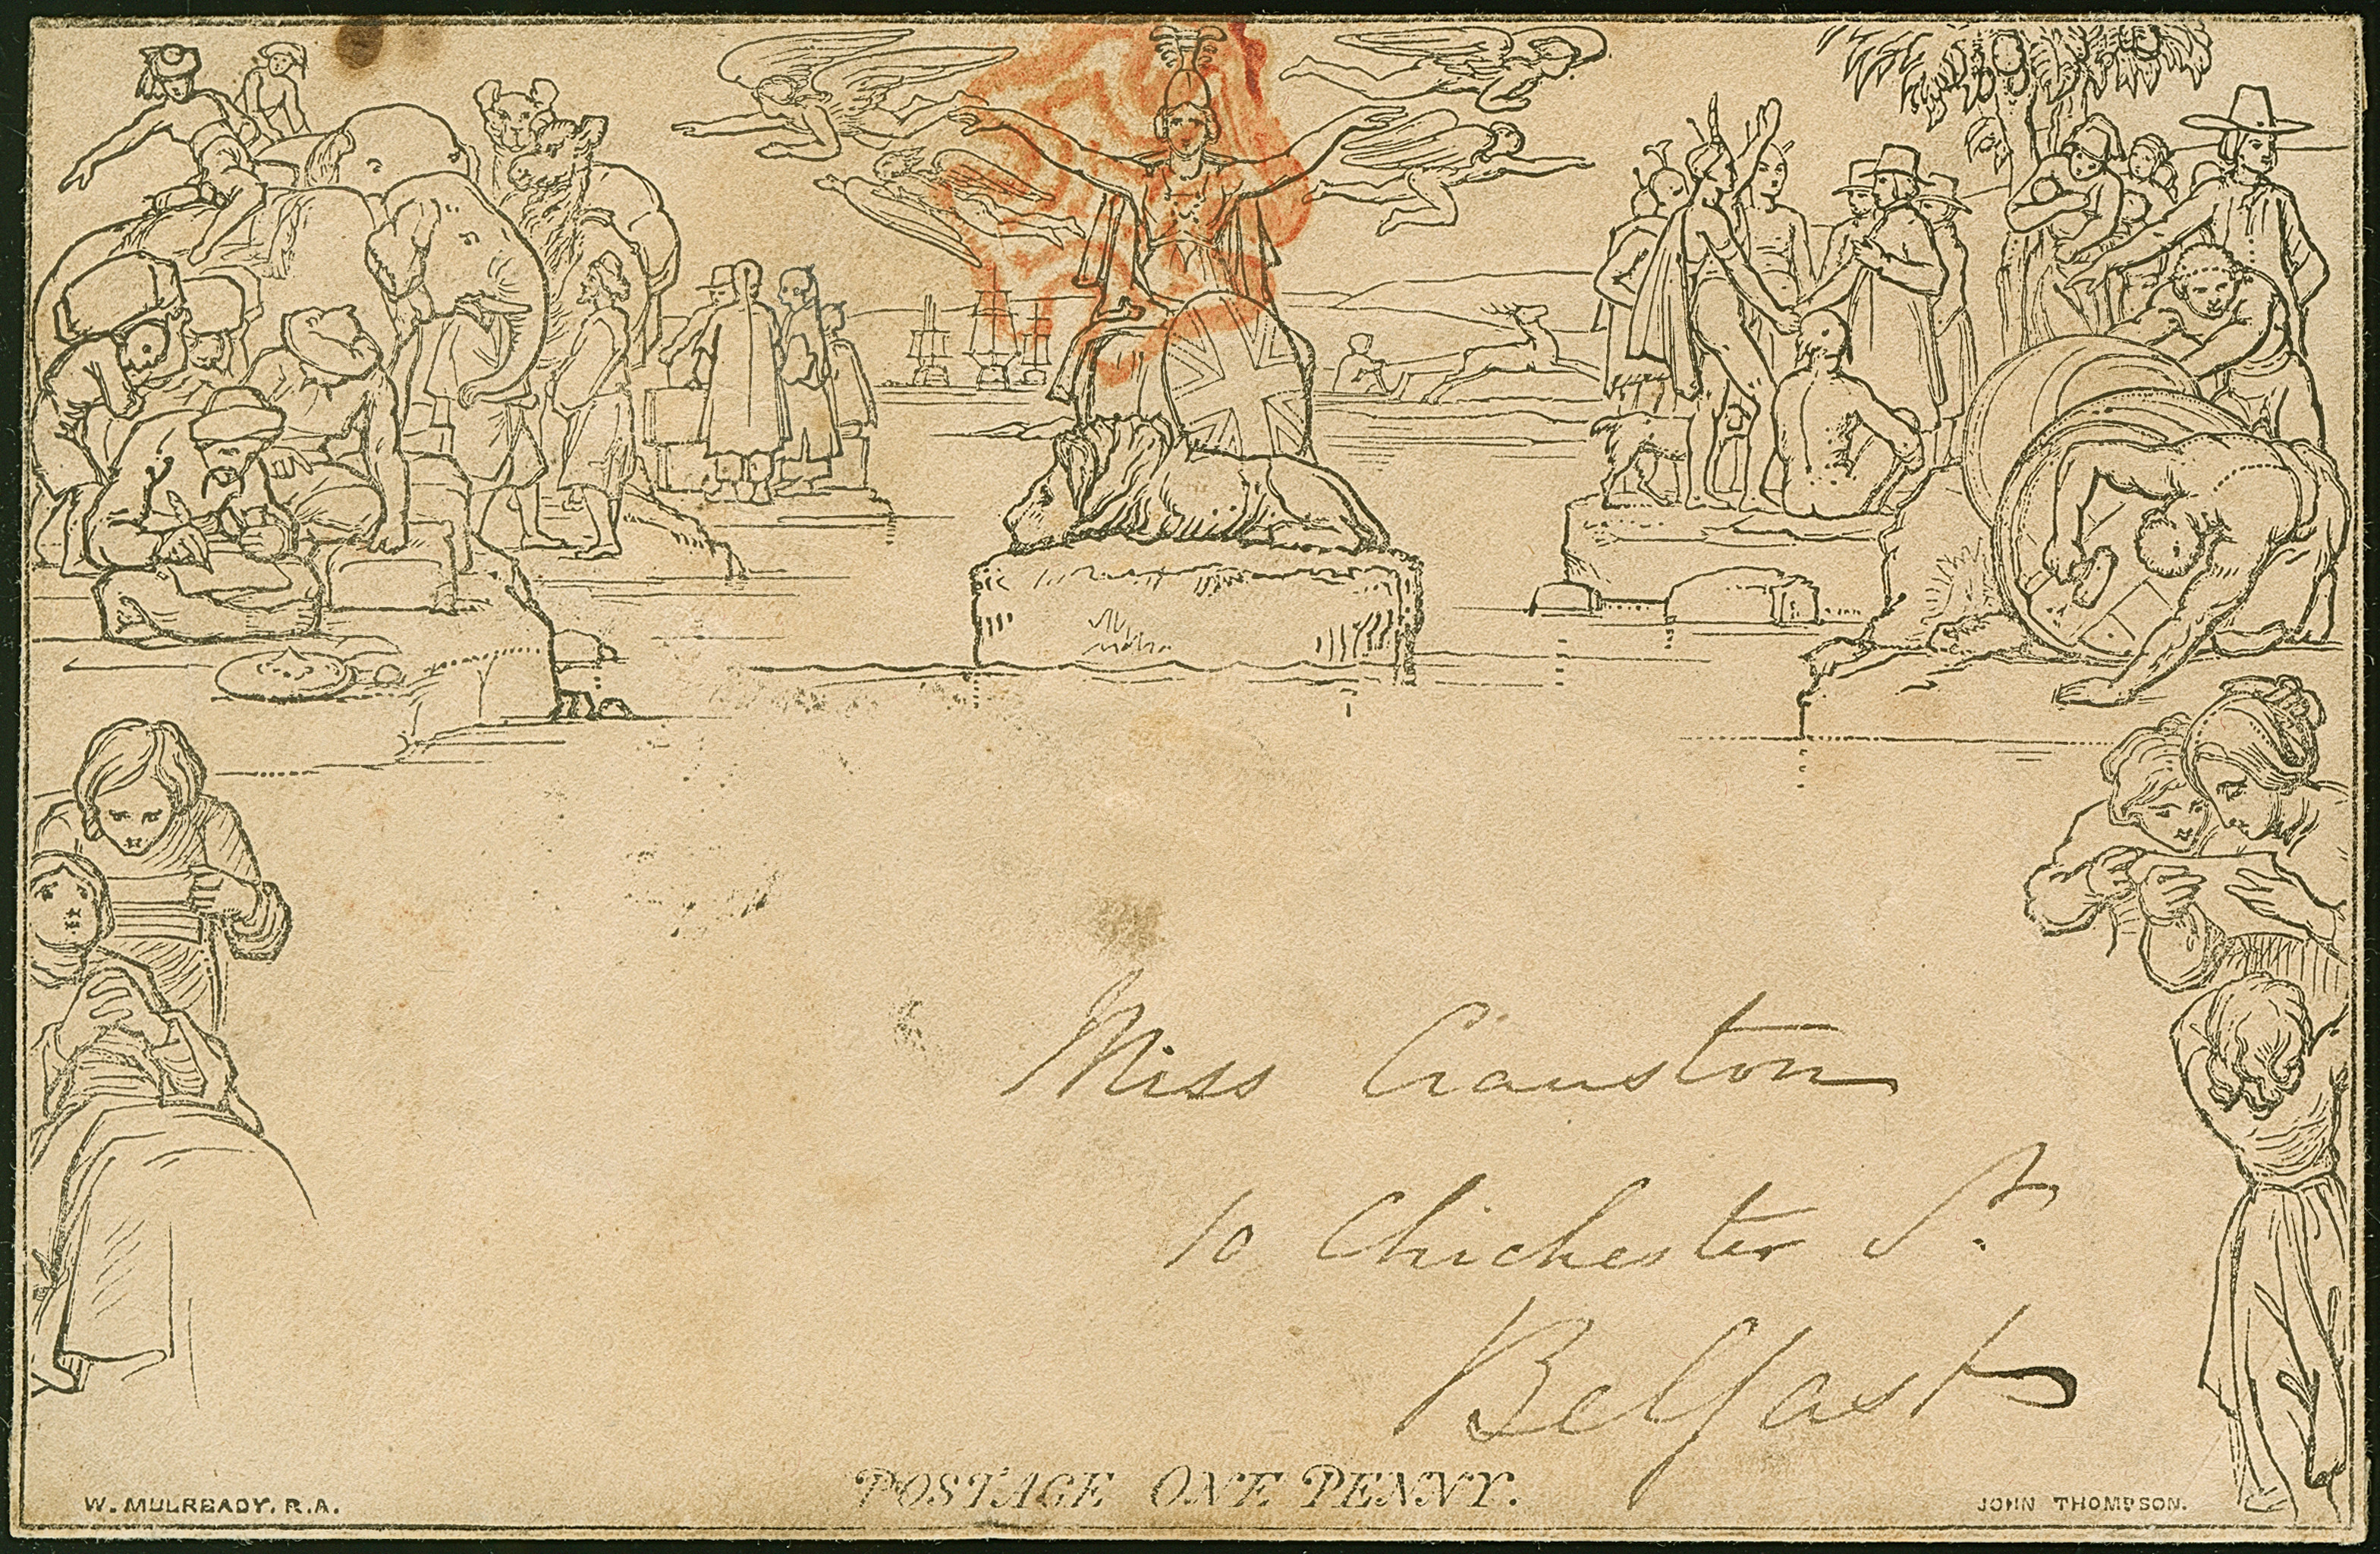 Miss Cranston
10 Chichester St.
Belfast
POSTAGE ONE PENNY.
W. MULREADY. R.A.
JOHN THOMPSON.